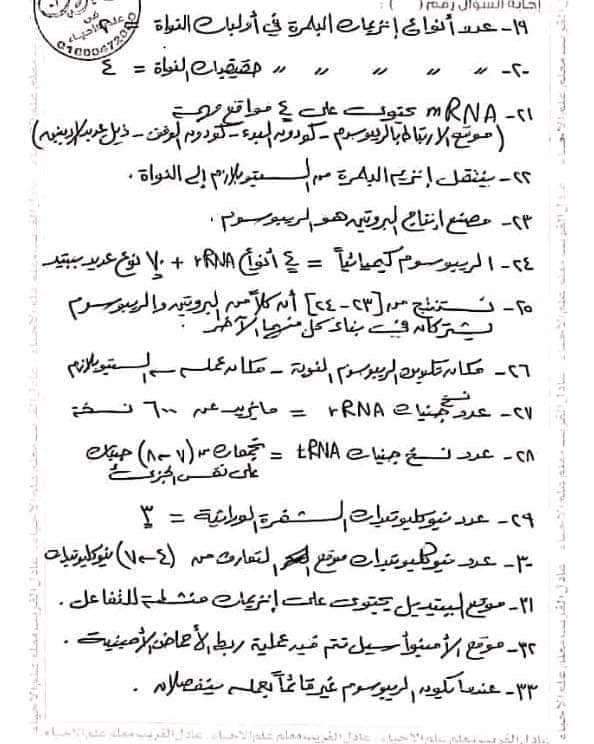 إجابة السؤال رقم ( ) :
١٩- عدد أنواع إنزيمات البلمرة في أوليات النواة
٢٠- " " " " " حقيقيات النواة = ٤
٢١- mRNA يحتوى على ٤ مواقع مهمة
(موقع الارتباط بالريبوسوم - كودون البدء - كودون الوقف - ذيل عديد الأدينين)
٢٢- ينتقل إنزيم البلمرة من السيتوبلازم إلى النواة .
٢٣- مصنع إنتاج البروتين هو الريبوسوم .
٢٤- الريبوسوم كيميائياً = ٤ أنواع rRNA + ٧٠ نوع عديد ببتيد
٢٥- نستنتج من [٢٣-٢٤] أن كلاً من البروتين والريبوسوم
يشتركان في بناء كل منهما الآخر .
٢٦- مكان تكوين الريبوسوم النوية - مكان عمله السيتوبلازم
٢٧- عدد نسخ جينات rRNA = ما يزيد عن ٦٠٠ نسخة
٢٨- عدد نسخ جينات tRNA = تجمعات من (٧-٨) جينات
على نفس الجزئ
٢٩- عدد نيوكليوتيدات الشفرة الوراثية = ٣
٣٠- عدد نيوكليوتيدات موقع التعارف من (٤-٧) نيوكليوتيدات
٣١- موقع الببتيديل يحتوى على إنزيمات منشطة للتفاعل .
٣٢- موقع الأمينو أسيل تتم فيه عملية ربط الأحماض الأمينية .
٣٣- عندما يكون الريبوسوم غير قائماً بعمله ينفصلان .
عادل الغريب معلم علم الاحياء